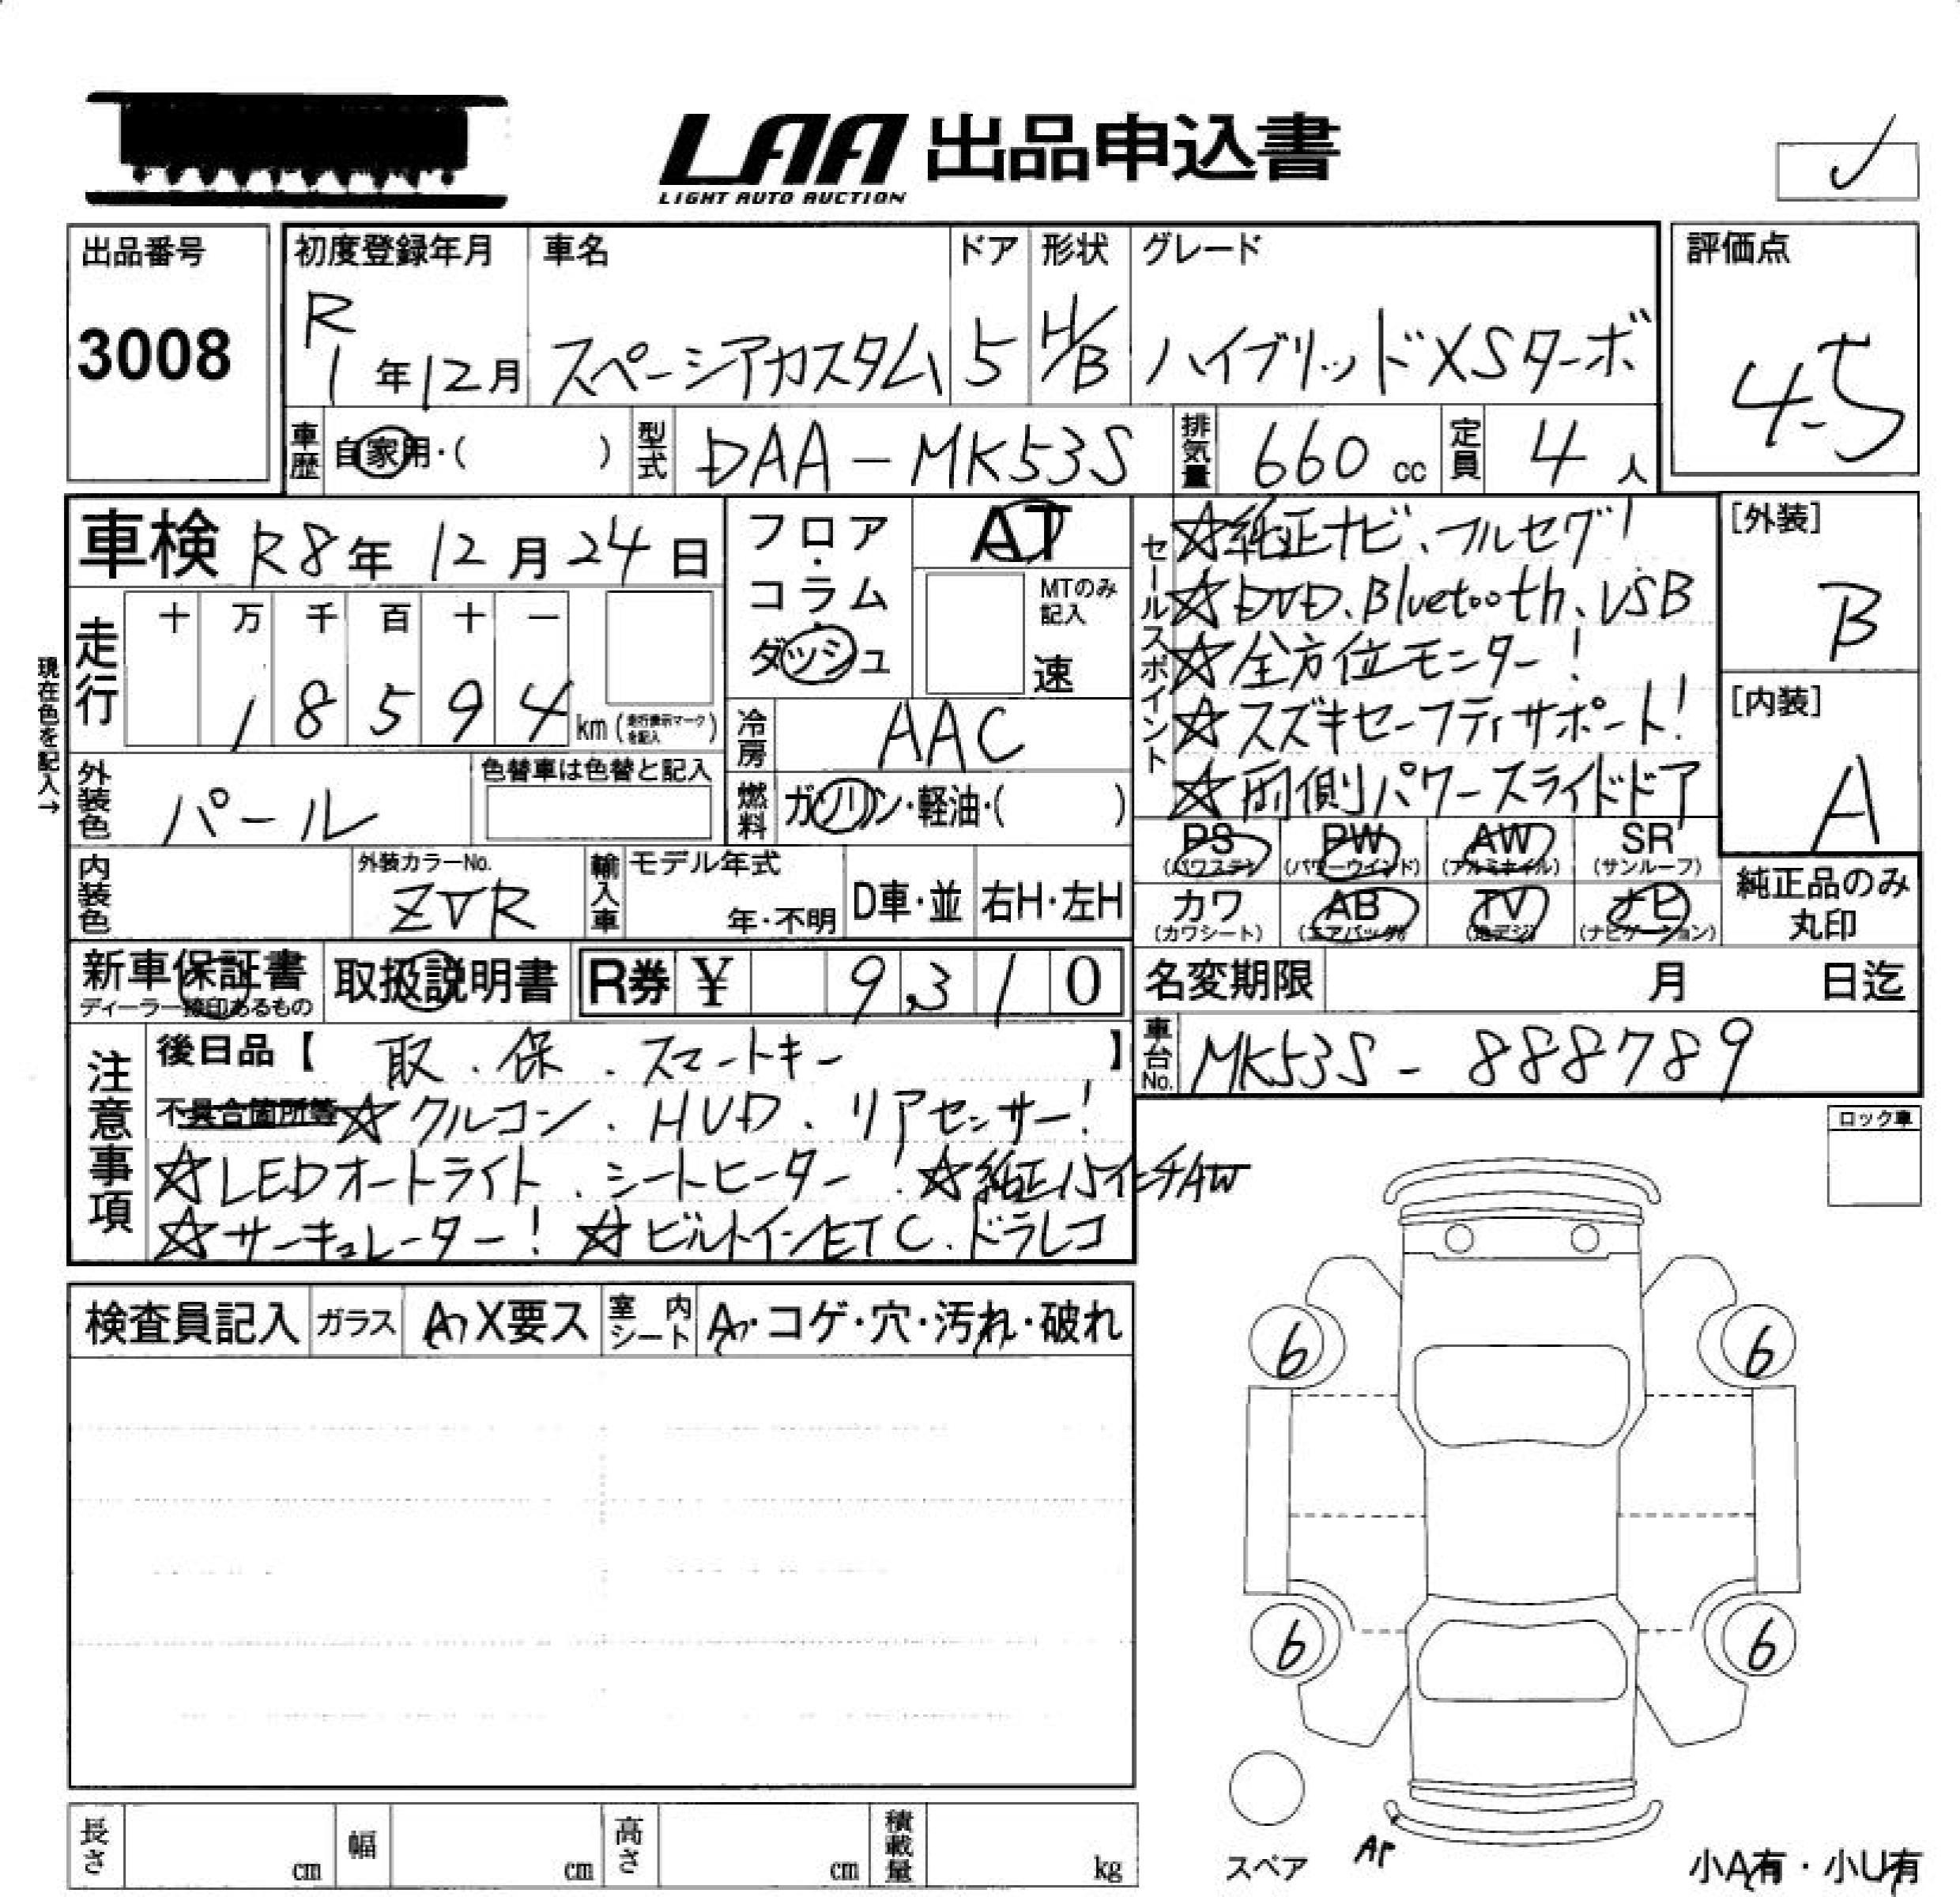 LAA 出品申込書
LIGHT AUTO AUCTION
出品番号
3008
初度登録年月
R
1 年 12 月
車名
スペーシアカスタム
ドア
5
形状
H/B
グレード
ハイブリッドXSターボ
評価点
4.5
車歴 自家用・( )
型式 DAA-MK53S
排気量 660 cc
定員 4 人
車検 R8 年 12 月 24 日
フロア・コラム・ダッシュ
AT
MTのみ記入
速
セールスポイント
☆純正ナビ、フルセグ!
☆DVD、Bluetooth、USB
☆全方位モニター!
☆スズキセーフティサポート!
☆両側パワースライドドア
[外装]
B
[内装]
A
現在色を記入→
走行
十 万 千 百 十 一
1 8 5 9 4 km (走行表示マークを記入)
冷房 AAC
外装色 パール
色替車は色替と記入
燃料 ガソリン・軽油・( )
内装色
外装カラーNo.
ZVR
輸入車
モデル年式
年・不明
D車・並
右H・左H
PS (パワステ)
PW (パワーウインド)
AW (アルミホイル)
SR (サンルーフ)
カワ (カワシート)
AB (エアバッグ)
TV (地デジ)
ナビ (ナビゲーション)
純正品のみ
丸印
新車保証書
ディーラー捺印あるもの
取扱説明書
R券 ¥ 9,310
名変期限 月 日迄
車台No. MK53S-888789
注意事項
後日品【 取.保.スマートキー 】
不具合箇所等 ☆クルコン.HUD.リアセンサー!
☆LEDオートライト.シートヒーター! ☆純正15インチAW
☆サーキュレーター! ☆ビルトインETC.ドラレコ
ロック車
検査員記入
ガラス A X要ス
室内シート A・コゲ・穴・汚れ・破れ
6 6
6 6
長さ cm
幅 cm
高さ cm
積載量 kg
スペア
AP
小A有・小U有